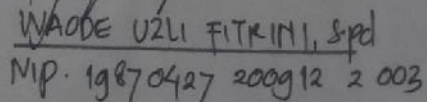 WAODE UZLI FITRINI, S.pd
NIP. 19870427 200912 2 003